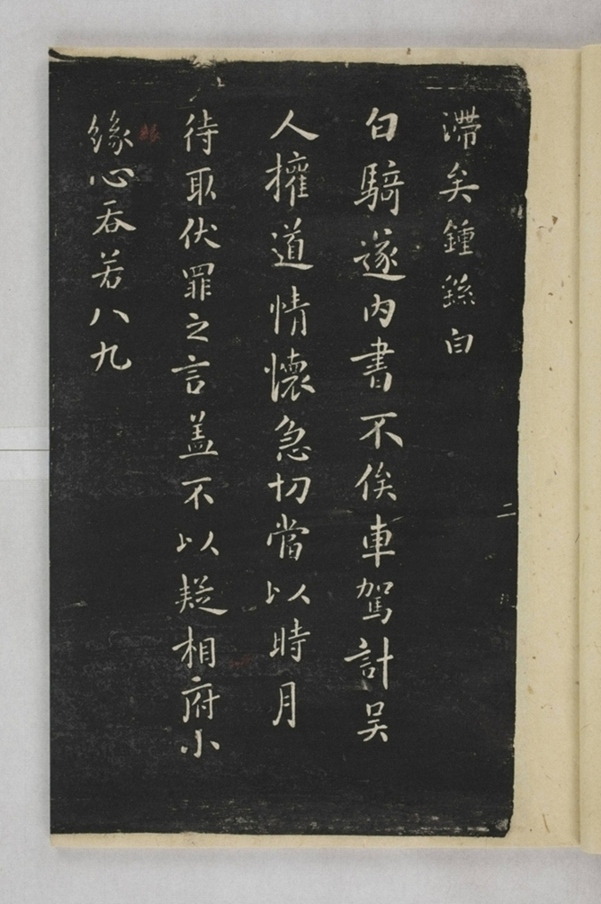 滯矣鍾繇白
白騎遂內書不俟車駕計吴
人權道情懷急切當以時月
待取伏罪之言盖不以疑相府小
緣心吞若八九
二